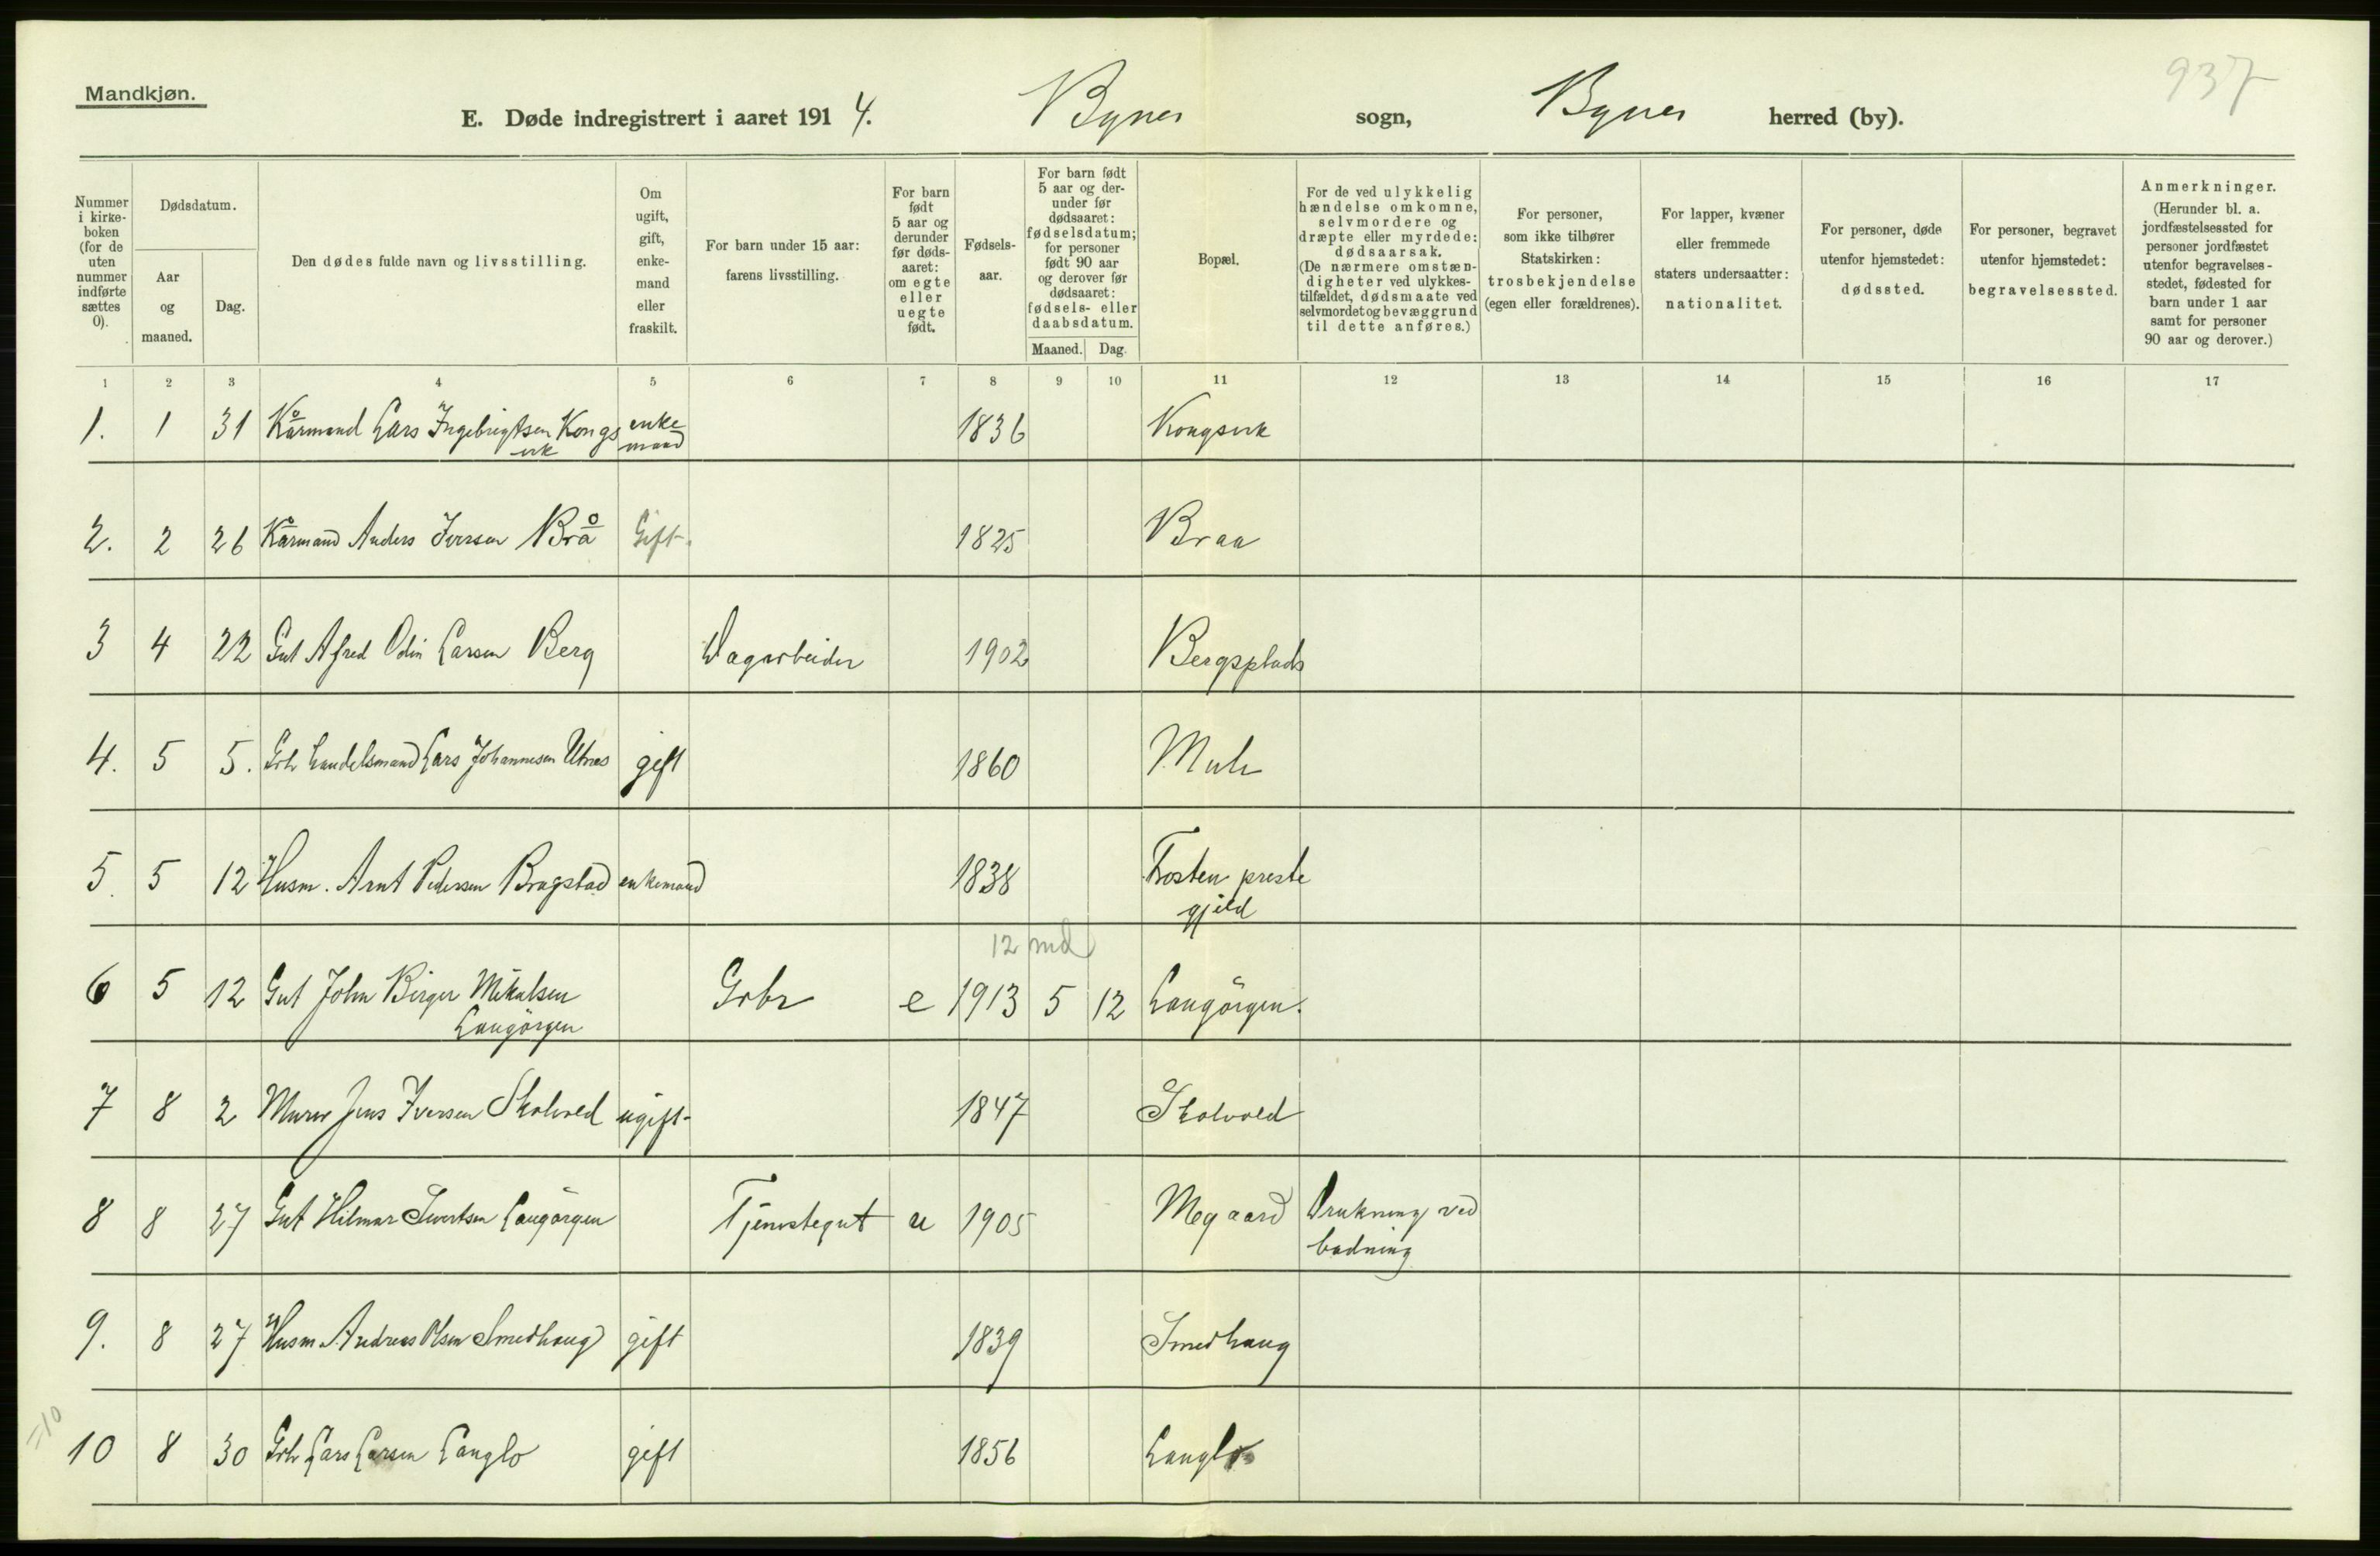 Mandkjøn.
937
E. Døde indregistrert i aaret 1914. Bynes sogn, Bynes herred (by).
Nummer i kirkeboken (for de uten nummer indførte sættes 0).
Dødsdatum.
Aar og maaned.
Dag.
Den dødes fulde navn og livsstilling.
Om ugift, gift, enkemand eller fraskilt.
For barn under 15 aar: farens livsstilling.
For barn født 5 aar og derunder før dødsaaret: om egte eller uegte født.
Fødselsaar.
For barn født 5 aar og derunder før dødsaaret: fødselsdatum; for personer født 90 aar og derover før dødsaaret: fødsels- eller daabsdatum.
Maaned. Dag.
Bopæl.
For de ved ulykkelig hændelse omkomne, selvmordere og dræpte eller myrdede: dødsaarsak. (De nærmere omstændigheter ved ulykkestilfældet, dødsmaate ved selvmordet og bevæggrund til dette anføres.)
For personer, som ikke tilhører Statskirken: trosbekjendelse (egen eller forældrenes).
For lapper, kvæner eller fremmede staters undersaatter: nationalitet.
For personer, døde utenfor hjemstedet: dødssted.
For personer, begravet utenfor hjemstedet: begravelsessted.
Anmerkninger. (Herunder bl. a. jordfæstelsessted for personer jordfæstet utenfor begravelsesstedet, fødested for barn under 1 aar samt for personer 90 aar og derover.)
1 2 3 4 5 6 7 8 9 10 11 12 13 14 15 16 17
1. 1 31 Kårmand Lars Ingebrigtsen Kongs enke 1836 Kongsvik
vik mand
2. 2 26 Kårmand Anders Iversen Brå Gift. 1825 Braa
3 4 22 Gut Afred Odin Larsen Berg Dagarbeider 1902 Bergsplads
4. 5 5. Grbr Handelsmand Lars Johannesen Utnes gift 1860 Mule
5. 5 12 Husm. Arnt Pedersen Bragstad enkemand 1838 Frosten preste
gjeld
12 md
6 5 12 Gut John Birger Mikalsen Grbr e 1913 5 12 Langörgen.
Langörgen
7 8 2 Murer Jens Iversen Skolvold ugift- 1847 Skolvold
8 8 27 Gut Hilmar Sivertsen Langörgen Tjenestegut u 1905 Megaard Drukning ved
badning
9. 8 27 Husm Andreas Olsen Smedhaug gift 1839 Smedhaug
=10
10 8 30 Grbr Lars Larsen Langlo gift 1856 Langlo